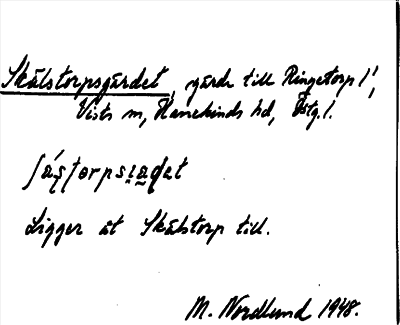 Skälstorpsgärdet, gärde till Ringetorp 1¹,
Vists sn, Hanekinds hd, Östg. l.
Ligger åt Skälstorp till.
M. Nordlund 1948.